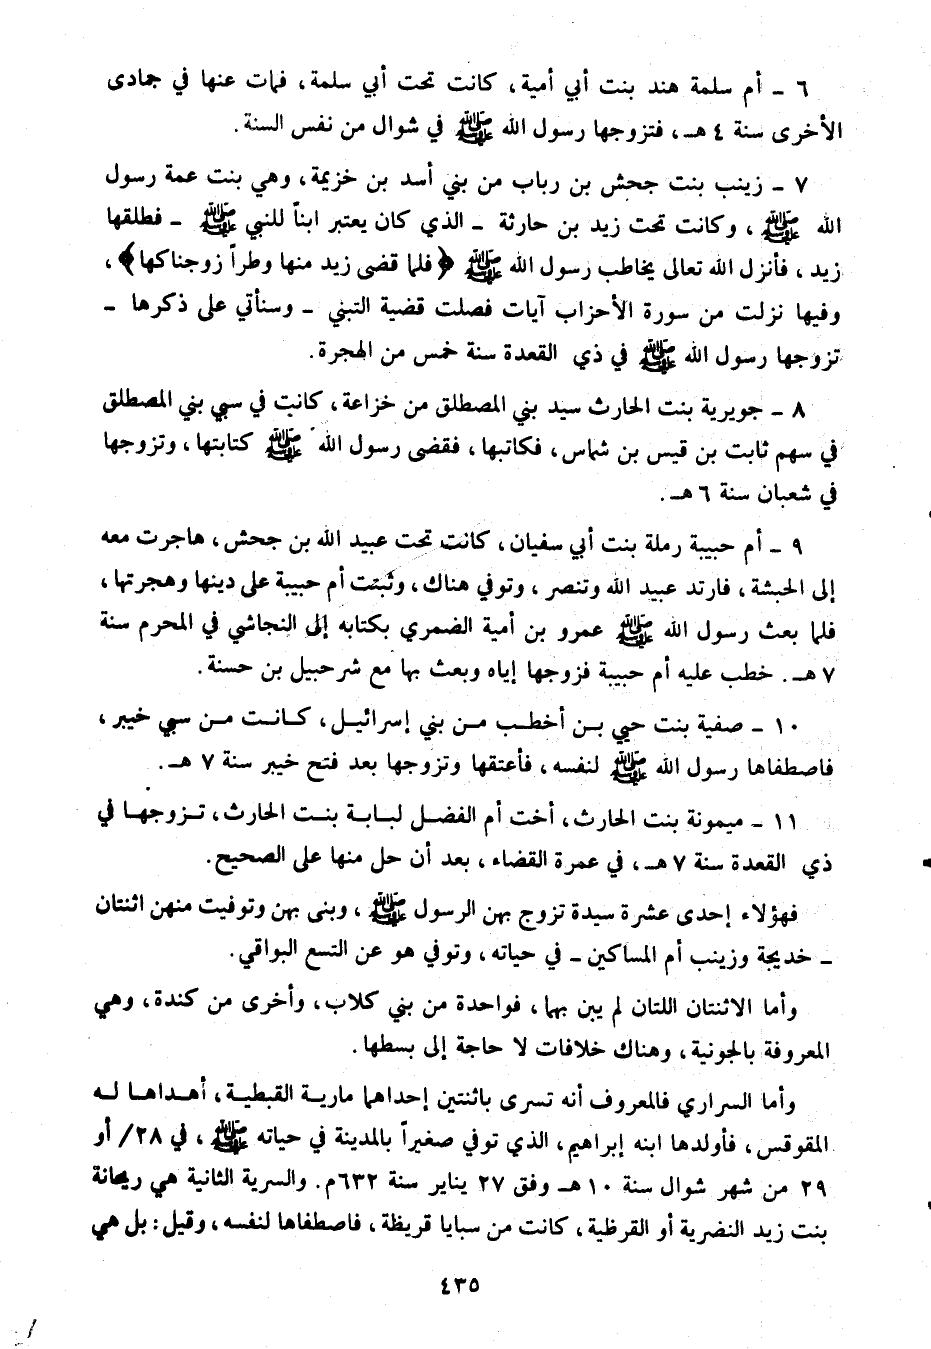 ٦ - أم سلمة هند بنت أبي أمية، كانت تحت أبي سلمة، فمات عنها في جمادى
الأخرى سنة ٤ هـ، فتزوجها رسول الله ﷺ في شوال من نفس السنة.
٧ - زينب بنت جحش بن رباب من بني أسد بن خزيمة، وهي بنت عمة رسول
الله ﷺ، وكانت تحت زيد بن حارثة - الذي كان يعتبر ابناً للنبي ﷺ - فطلقها
زيد، فأنزل الله تعالى يخاطب رسول الله ﷺ ﴿فلما قضى زيد منها وطراً زوجناكها﴾،
وفيها نزلت من سورة الأحزاب آيات فصلت قضية التبني - وسنأتي على ذكرها -
تزوجها رسول الله ﷺ في ذي القعدة سنة خمس من الهجرة.
٨ - جويرية بنت الحارث سيد بني المصطلق من خزاعة، كانت في سبي بني المصطلق
في سهم ثابت بن قيس بن شماس، فكاتبها، فقضى رسول الله ﷺ كتابتها، وتزوجها
في شعبان سنة ٦ هـ.
٩ - أم حبيبة رملة بنت أبي سفيان، كانت تحت عبيد الله بن جحش، هاجرت معه
إلى الحبشة، فارتد عبيد الله وتنصر، وتوفي هناك، وثبتت أم حبيبة على دينها وهجرتها،
فلما بعث رسول الله ﷺ عمرو بن أمية الضمري بكتابه إلى النجاشي في المحرم سنة
٧ هـ. خطب عليه أم حبيبة فزوجها إياه وبعث بها مع شرحبيل بن حسنة.
١٠ - صفية بنت حيي بن أخطب من بني إسرائيل، كانت من سبي خيبر،
فاصطفاها رسول الله ﷺ لنفسه، فأعتقها وتزوجها بعد فتح خيبر سنة ٧ هـ.
١١ - ميمونة بنت الحارث، أخت أم الفضل لبابة بنت الحارث، تزوجها في
ذي القعدة سنة ٧ هـ، في عمرة القضاء، بعد أن حل منها على الصحيح.
فهؤلاء إحدى عشرة سيدة تزوج بهن الرسول ﷺ، وبنى بهن وتوفيت منهن اثنتان
- خديجة وزينب أم المساكين - في حياته، وتوفي هو عن التسع البواقي.
وأما الاثنتان اللتان لم يبن بهما، فواحدة من بني كلاب، وأخرى من كندة، وهي
المعروفة بالجونية، وهناك خلافات لا حاجة إلى بسطها.
وأما السراري فالمعروف أنه تسرى باثنتين إحداهما مارية القبطية، أهداها له
المقوقس، فأولدها ابنه إبراهيم، الذي توفي صغيراً بالمدينة في حياته ﷺ، في ٢٨/ أو
٢٩ من شهر شوال سنة ١٠ هـ وفق ٢٧ يناير سنة ٦٣٢م. والسرية الثانية هي ريحانة
بنت زيد النضرية أو القرظية، كانت من سبايا قريظة، فاصطفاها لنفسه، وقيل: بل هي
٤٣٥